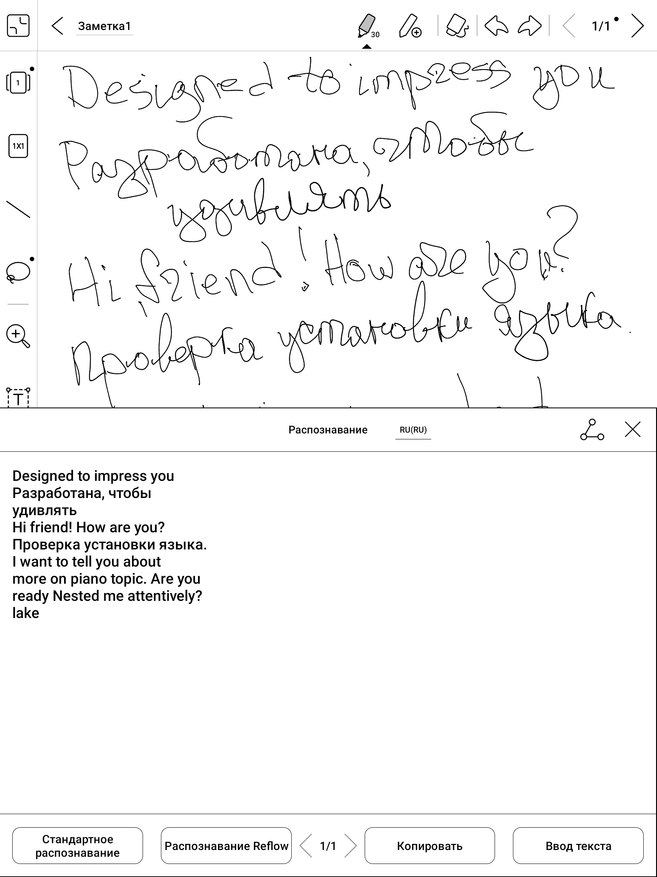 Заметка1
30
1/1
1
1X1
T
Designed to impress you
Разработана, чтобы
удивлять
Hi friend! How are you?
Проверка установки языка.
Распознавание
RU(RU)
Designed to impress you
Разработана, чтобы
удивлять
Hi friend! How are you?
Проверка установки языка.
I want to tell you about
more on piano topic. Are you
ready Nested me attentively?
lake
Стандартное
распознавание
Распознавание Reflow
1/1
Копировать
Ввод текста